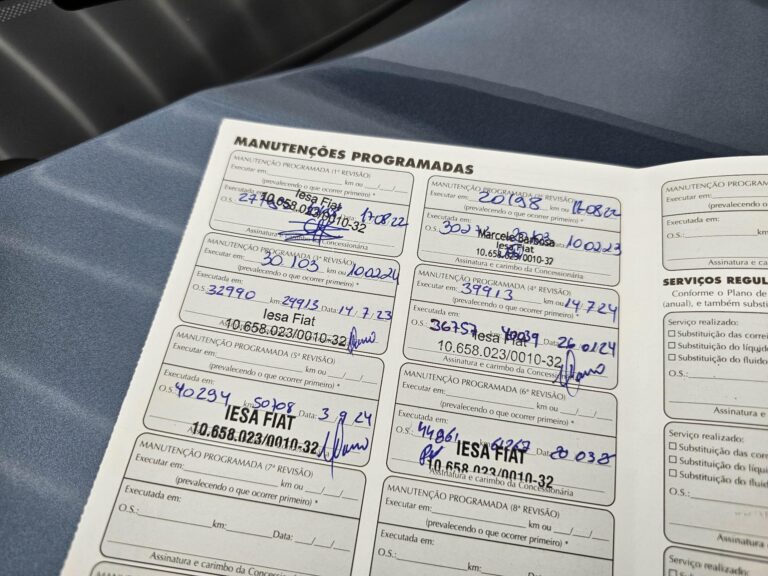 MANUTENÇÕES PROGRAMADAS
MANUTENÇÃO PROGRAMADA (1ª REVISÃO)
Executar em: km ou / /
(prevalecendo o que ocorrer primeiro) *
Executada em:
Iesa Fiat
O.S.: Data: 17 08 22
10.658.023/0010-32
Assinatura e carimbo da Concessionária
MANUTENÇÃO PROGRAMADA REVISÃO)
Executar em: 20198 km ou 17.08.22
(prevalecendo o que ocorrer primeiro) *
Executada em:
Marcele Barbosa
O.S.: Data: 10 02 23
Iesa Fiat
10.658.023/0010-32
Assinatura e carimbo da Concessionária
MANUTENÇÃO PROGRAMADA REVISÃO)
Executar em: 30103 km ou 10 02 24
(prevalecendo o que ocorrer primeiro) *
Executada em:
O.S.: 32990 km: 29913 Data: 14.7.23
Iesa Fiat
10.658.023/0010-32
MANUTENÇÃO PROGRAMADA (4ª REVISÃO)
Executar em: 39913 km ou 14.7.24
(prevalecendo o que ocorrer primeiro) *
Executada em:
O.S.: 36757 40039 26 01 24
Iesa Fiat
10.658.023/0010-32
Assinatura e carimbo da Concessionária
MANUTENÇÃO PROGRAMADA (5ª REVISÃO)
Executar em: km ou / /
(prevalecendo o que ocorrer primeiro) *
Executada em:
O.S.: 40294 km: 50708 Data: 3.9.24
IESA FIAT
10.658.023/0010-32
MANUTENÇÃO PROGRAMADA (6ª REVISÃO)
Executar em: km ou / /
(prevalecendo o que ocorrer primeiro) *
Executada em:
O.S.: 44861 Data:
IESA FIAT
10.658.023/0010-32
Assinatura e carimbo da Concessionária
MANUTENÇÃO PROGRAMADA (7ª REVISÃO)
Executar em: km ou / /
(prevalecendo o que ocorrer primeiro) *
Executada em:
O.S.: km: Data: / /
Assinatura e carimbo da Concessionária
MANUTENÇÃO PROGRAMADA (8ª REVISÃO)
Executar em: km ou / /
(prevalecendo o que ocorrer primeiro) *
Executada em:
O.S.: km: Data: / /
Assinatura e carimbo da Concessionária
MANUTENÇÃO PROGRAMAD
Executar em:
(prevalecendo o
Executada em:
O.S.:
Assinatura e
SERVIÇOS REGUL
Conforme o Plano de
(anual), e também substi
Serviço realizado:
Substituição das correi
Substituição do líquid
Substituição do fluido
O.S.:
Assinatura e
Serviço realizado:
Substituição das corr
Substituição do líqui
Substituição do fluid
O.S.:
Assinatura
Serviço realizado:
Substituição